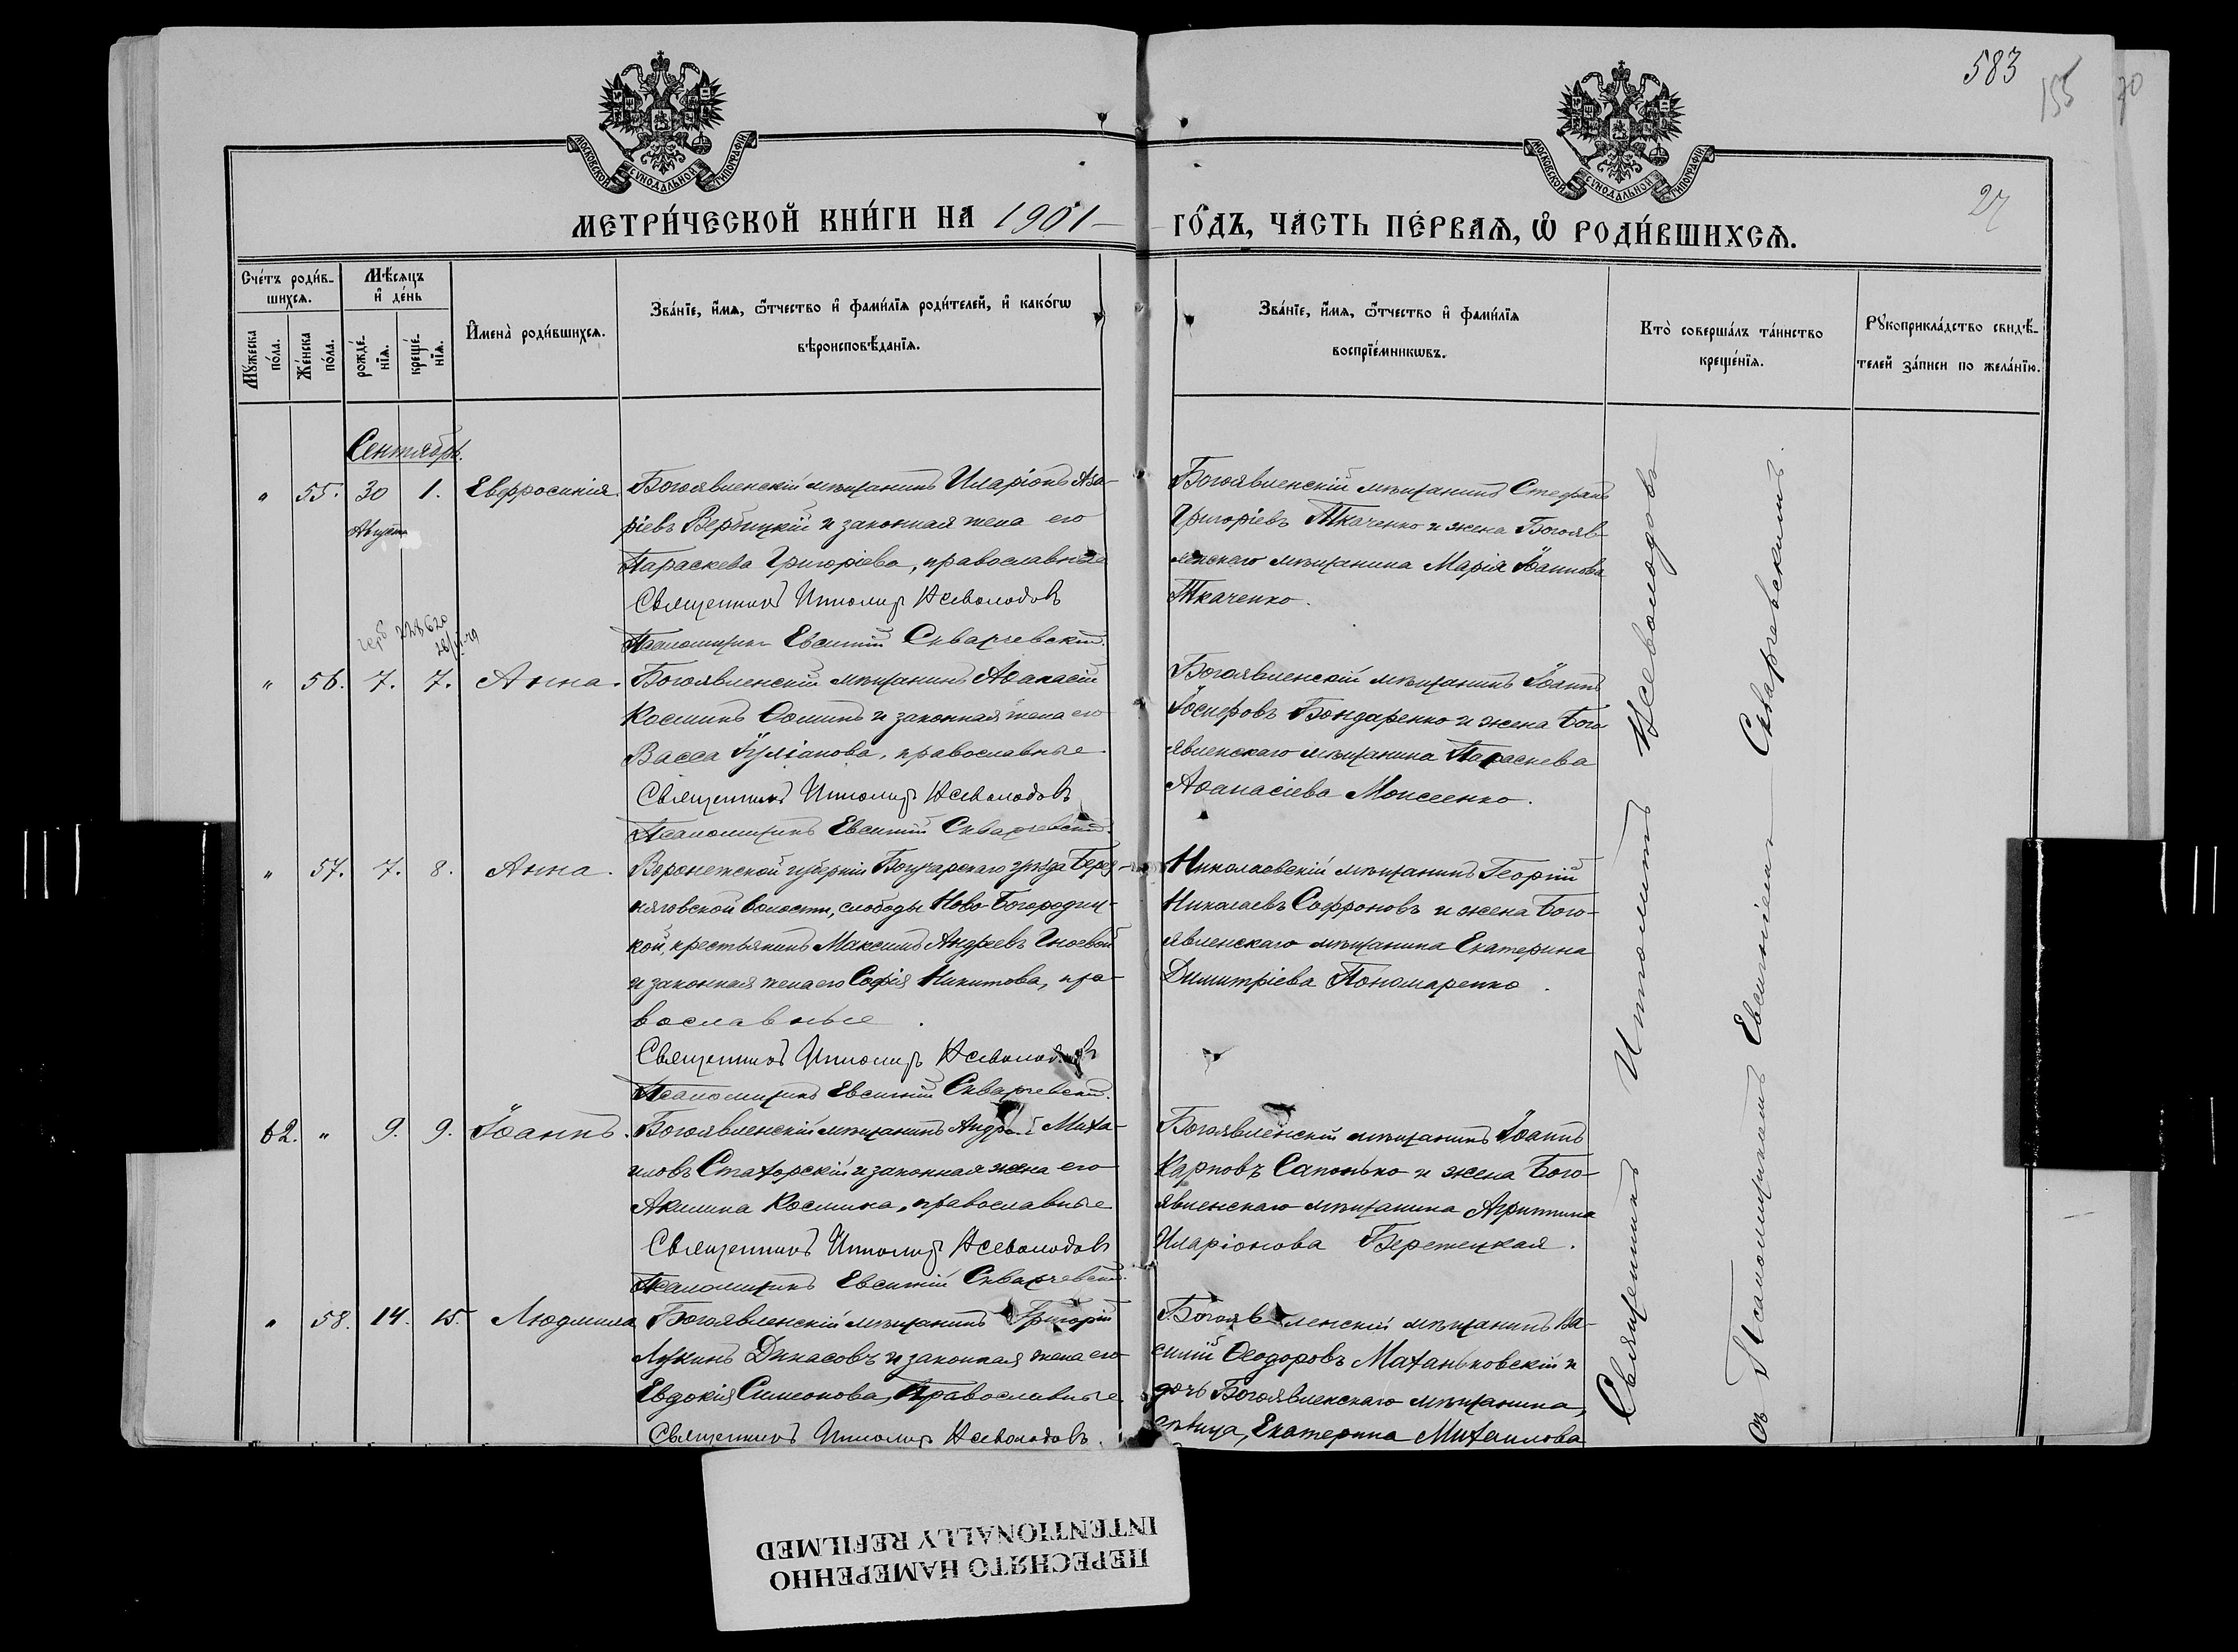 583
155
70
27
МОСКОВСКОЙ СУНОДАЛЬНОЙ ТИПОГРАФІИ
МОСКОВСКОЙ СУНОДАЛЬНОЙ ТИПОГРАФІИ
МЕТРИ́ЧЕСКОЙ КНИ́ГИ НА 1901
ГО́ДЪ, ЧА́СТЬ ПЕ́РВАѦ, Ѽ РОДИ́ВШИХСѦ.
Сче́тъ роди́в-
шихсѧ.
Мꙋжеска по́ла.
Же́нска по́ла.
Мѣ́сѧцъ
и҆ де́нь
рожде́-
нїѧ.
креще́-
нїѧ.
И҆мена̀ роди́вшихсѧ.
Зва́нїе, и҆́мѧ, ѻ҆́тчество и҆ фами́лїѧ роди́телей, и҆ како́гѡ
вѣроисповѣ́данїѧ.
Зва́нїе, и҆́мѧ, ѻ҆́тчество и҆ фами́лїѧ
воспрїе́мникѡвъ.
Кто̀ соверша́лъ та́инство
креще́нїѧ.
Рꙋкоприкла́дство свидѣ́-
телей за́писи по жела́нїю.
Сентябрь.
" 55. 30 1. Евфросинія.
Августа
Богоявленскій мѣщанинъ Иларіонъ Аза-
ріевъ Вербицкій и законная жена его
Параскева Григоріева, православные
Священникъ Ипполитъ Всеволодовъ
Псаломщикъ Евсигній Скварчевскій.
Богоявленскій мѣщанинъ Стефанъ
Григоріевъ Ткаченко и жена Богояв-
ленскаго мѣщанина Марія Іоаннова
Ткаченко.
" 56. 7. 7. Анна.
Богоявленскій мѣщанинъ Аѳанасій
Косминъ Ѳоминъ и законная жена его
Васса Іуліанова, православные.
Священникъ Ипполитъ Всеволодовъ
Псаломщикъ Евсигній Скварчевскій.
Богоявленскій мѣщанинъ Іоаннъ
Іосифовъ Бондаренко и жена Бого
явленскаго мѣщанина Параскева
Аѳанасіева Моисеенко.
" 57. 7. 8. Анна.
Воронежской губерніи Богучарскаго уѣзда Берез-
няговской волости, слободы Ново-Богородиц-
кой, крестьянинъ Максимъ Андреевъ Гноевой
и законная жена его Софія Никитова, пра-
вославные.
Священникъ Ипполитъ Всеволодовъ
Псаломщикъ Евсигній Скварчевскій.
Николаевскій мѣщанинъ Георгій
Николаевъ Софроновъ и жена Бого-
явленскаго мѣщанина Екатерина
Димитріева Пономаренко.
62. " 9. 9. Іоаннъ.
Богоявленскій мѣщанинъ Андрей Миха-
иловъ Стахорскій и законная жена его
Акилина Космина, православные
Священникъ Ипполитъ Всеволодовъ
Псаломщикъ Евсигній Скварчевскій.
Богоявленскій мѣщанинъ Іоаннъ
Карповъ Сапонько и жена Бого-
явленскаго мѣщанина Агриппина
Иларіонова Бережецкая.
" 58. 14. 15. Людмила
Богоявленскій мѣщанинъ Григорій
Лукинъ Дикасовъ и законная жена его
Евдокія Симеонова, Православные
Священникъ Ипполитъ Всеволодовъ.
Богоявленскій мѣщанинъ Ва-
силій Ѳеодоровъ Маханьковскій и
дочь Богоявленскаго мѣщанина,
дѣвица, Екатерина Михаилова
Священникъ Ипполитъ Всеволодовъ
съ Псаломщикомъ Евсигніемъ Скварчевскимъ.
ПЕРЕСНЯТО НАМЕРЕННО
INTENTIONALLY REFILMED